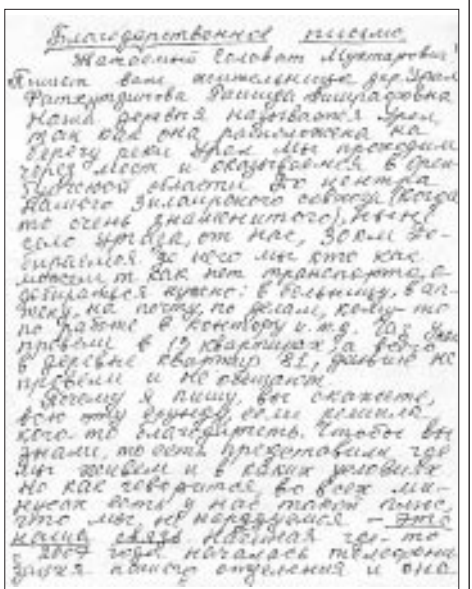 Благодарственное письмо
Уважаемый Салават Мухтарович!
Пишет вам жительница дер. Урал
Фатхутдинова Рашида
Наша деревня называется Урал,
так как она расположена на
берегу реки Урал мы проходим
через мост и оказываемся в Орен-
бургской области До центра
нашего Зилаирского совхоза (когда
то очень знаменитого), ныне
село от нас, 30 км До-
бираемся до него мы кто как
может т. как нет транспорта, а
добираться нужно: в больницу, в ап-
теку, на почту, по делам, кому-то
по работе в контору и т.д. Газ
провели в 19 квартирах за всего
в деревне квартир 81, дальше не
провели и не обещают.
Почему я пишу, вы скажете,
всю эту ерунду, если решила
кого-то благодарить. Чтобы вы
знали, то есть представили где
мы живем и в каких условиях
Но как говорится, во всех ми-
нусах есть у нас такой плюс,
что мы не нарадуемся - Это
наша связь. Начиная где-то
2007 года началась телефони-
зация нашего отделения и она